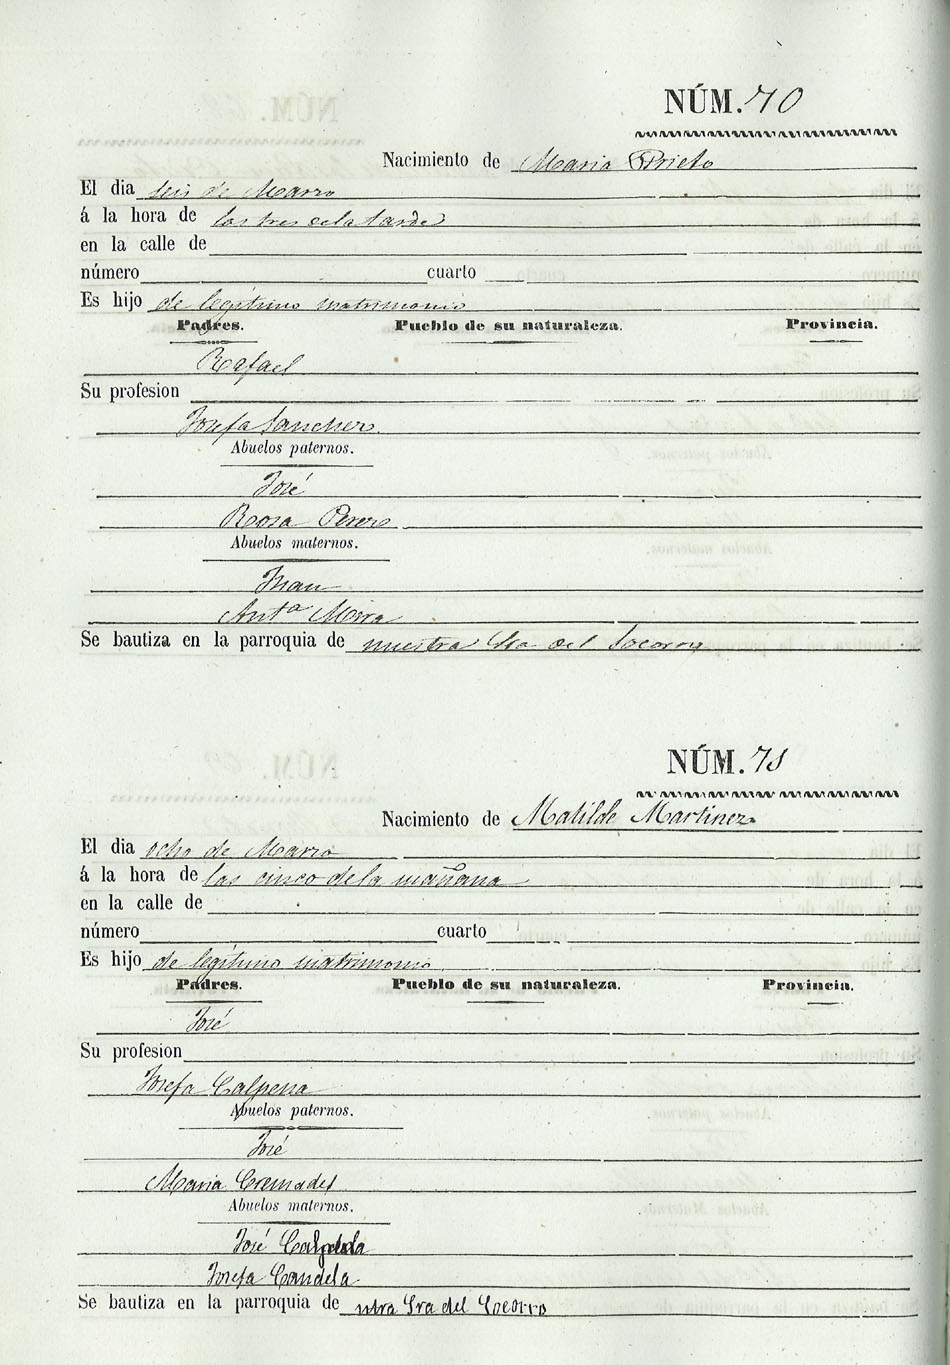 NÚM. 70
Nacimiento de Maria Prieto
El dia seis de Marzo
á la hora de las tres de la tarde
en la calle de
número cuarto
Es hijo de legítimo matrimonio
Padres. Pueblo de su naturaleza. Provincia.
Rafael
Su profesion
Josefa Sanchez
Abuelos paternos.
José
Rosa Perez
Abuelos maternos.
Juan
Antª Mira
Se bautiza en la parroquia de nuestra Sra del Socorro
NÚM. 71
Nacimiento de Matilde Martinez
El dia ocho de Marzo
á la hora de las cinco de la mañana
en la calle de
número cuarto
Es hijo de legítimo matrimonio
Padres. Pueblo de su naturaleza. Provincia.
José
Su profesion
Josefa Calpena
Abuelos paternos.
José
Maria Cremades
Abuelos maternos.
José
Josefa Candela
Se bautiza en la parroquia de ntra Sra del Socorro